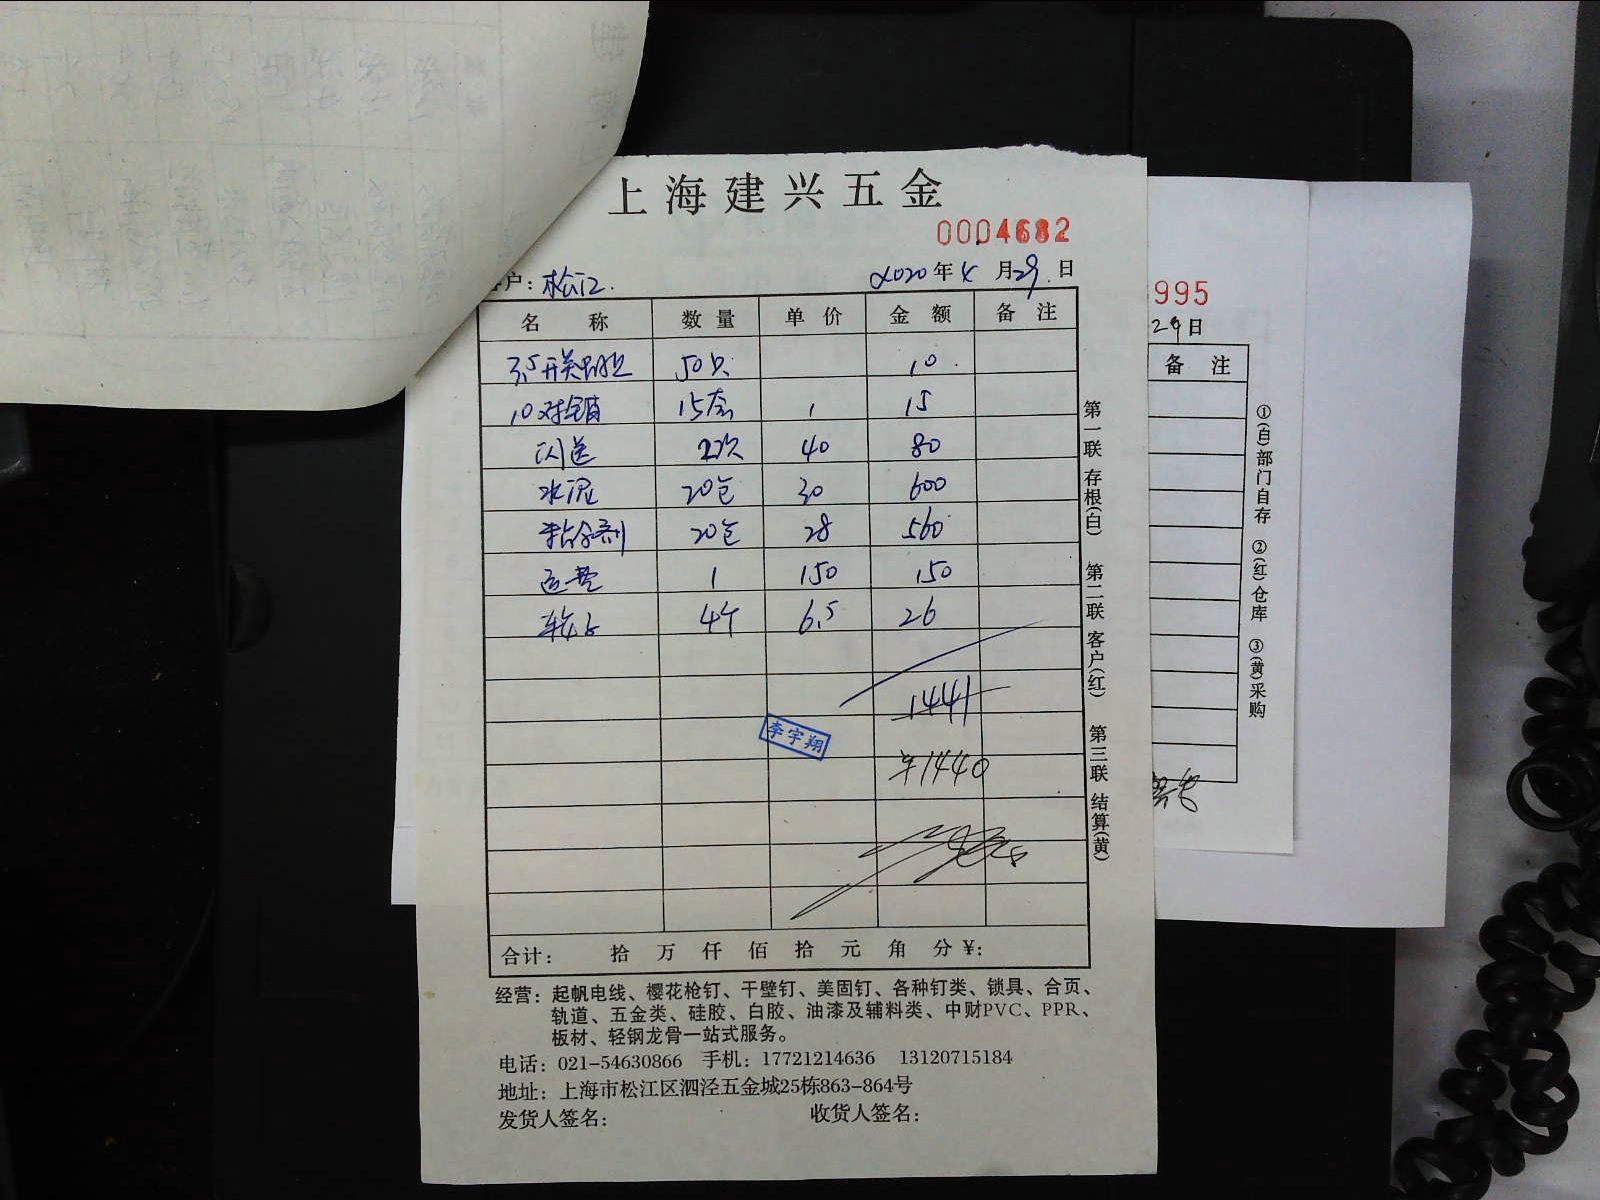 上海建兴五金
0004682
户：松江. 2020年4月29日
名称 数量 单价 金额 备注
3.5开关 50只 10.
10对销 15套 1 15
闪送 2次 40 80
水泥 20包 30 600
粘合剂 20包 28 560
运费 1 150 150
轮子 4个 6.5 26
1441
李宇翔
¥1440
合计： 拾 万 仟 佰 拾 元 角 分 ¥：
经营：起帆电线、樱花枪钉、干壁钉、美固钉、各种钉类、锁具、合页、
轨道、五金类、硅胶、白胶、油漆及辅料类、中财PVC、PPR、
板材、轻钢龙骨一站式服务。
电话：021-54630866 手机：17721214636 13120715184
地址：上海市松江区泗泾五金城25栋863-864号
发货人签名： 收货人签名：
第一联 存根(白) 第二联 客户(红) 第三联 结算(黄)
995
29日
备注
①(白)部门自存 ②(红)仓库 ③(黄)采购